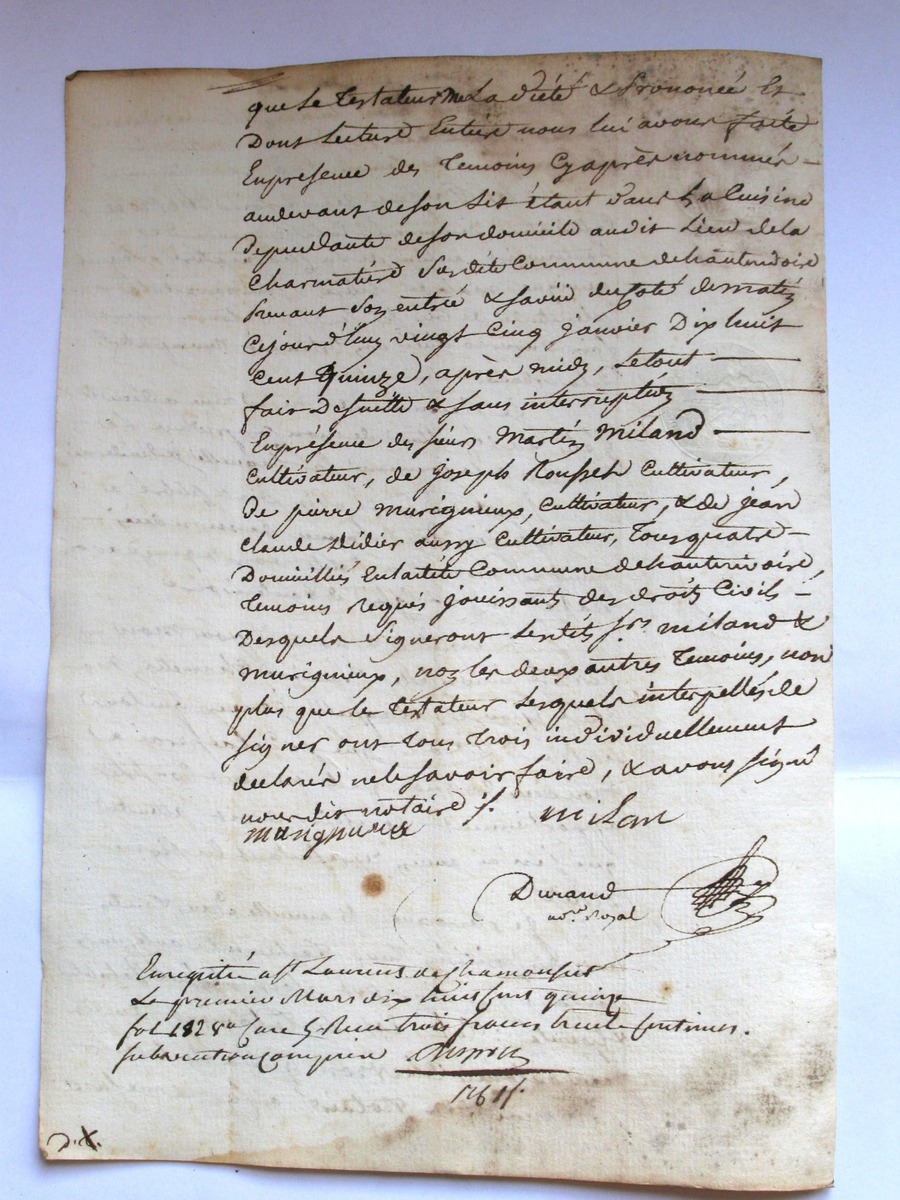 que le testateur me l'a dicté & prononcé Et
Dont lecture Entiere nous lui avons faite
Enpresence des temoins Cyaprès nommés –
audevant deson Lit étant dans la Cuisine
Dependante deson domicile audit Lieu dela
Charmatéré Susdite Commune dehauterivoire
prenant son entrée & saisie du coté dematin
Cejourd'huy vingt Cinq janvier Dix huit
Cent Quinze, après midy, Letout
fait Desuitte & sans interruption
Enprésence des sieurs Martin Miland
Cultivateur, de joseph Rousset Cultivateur,
De pierre murigneux, Cultivateur, & de jean
Claude Didier aussy Cultivateur, tous quatre –
Domiciliés Enladite Commune dehauterivoire,
temoins requis jouissants des droits Civils –
Desquels Signeront Lesdits srs. miland &
Murigneux, non les deux autres temoins, non
plus que le testateur Lesquels interpellés de
signer ont tous trois individuellement
declarés nele savoir faire, & avons signé
nousdit notaire ./.
murigneux milan
Durand
nore. Royal
Enregistré a St. Laurent de Chamousset
Le premier Mars dix huit cent quinze
fol 182 Vo Case 5 Recu trois francs trente centimes.
subvention comprise
D.X.